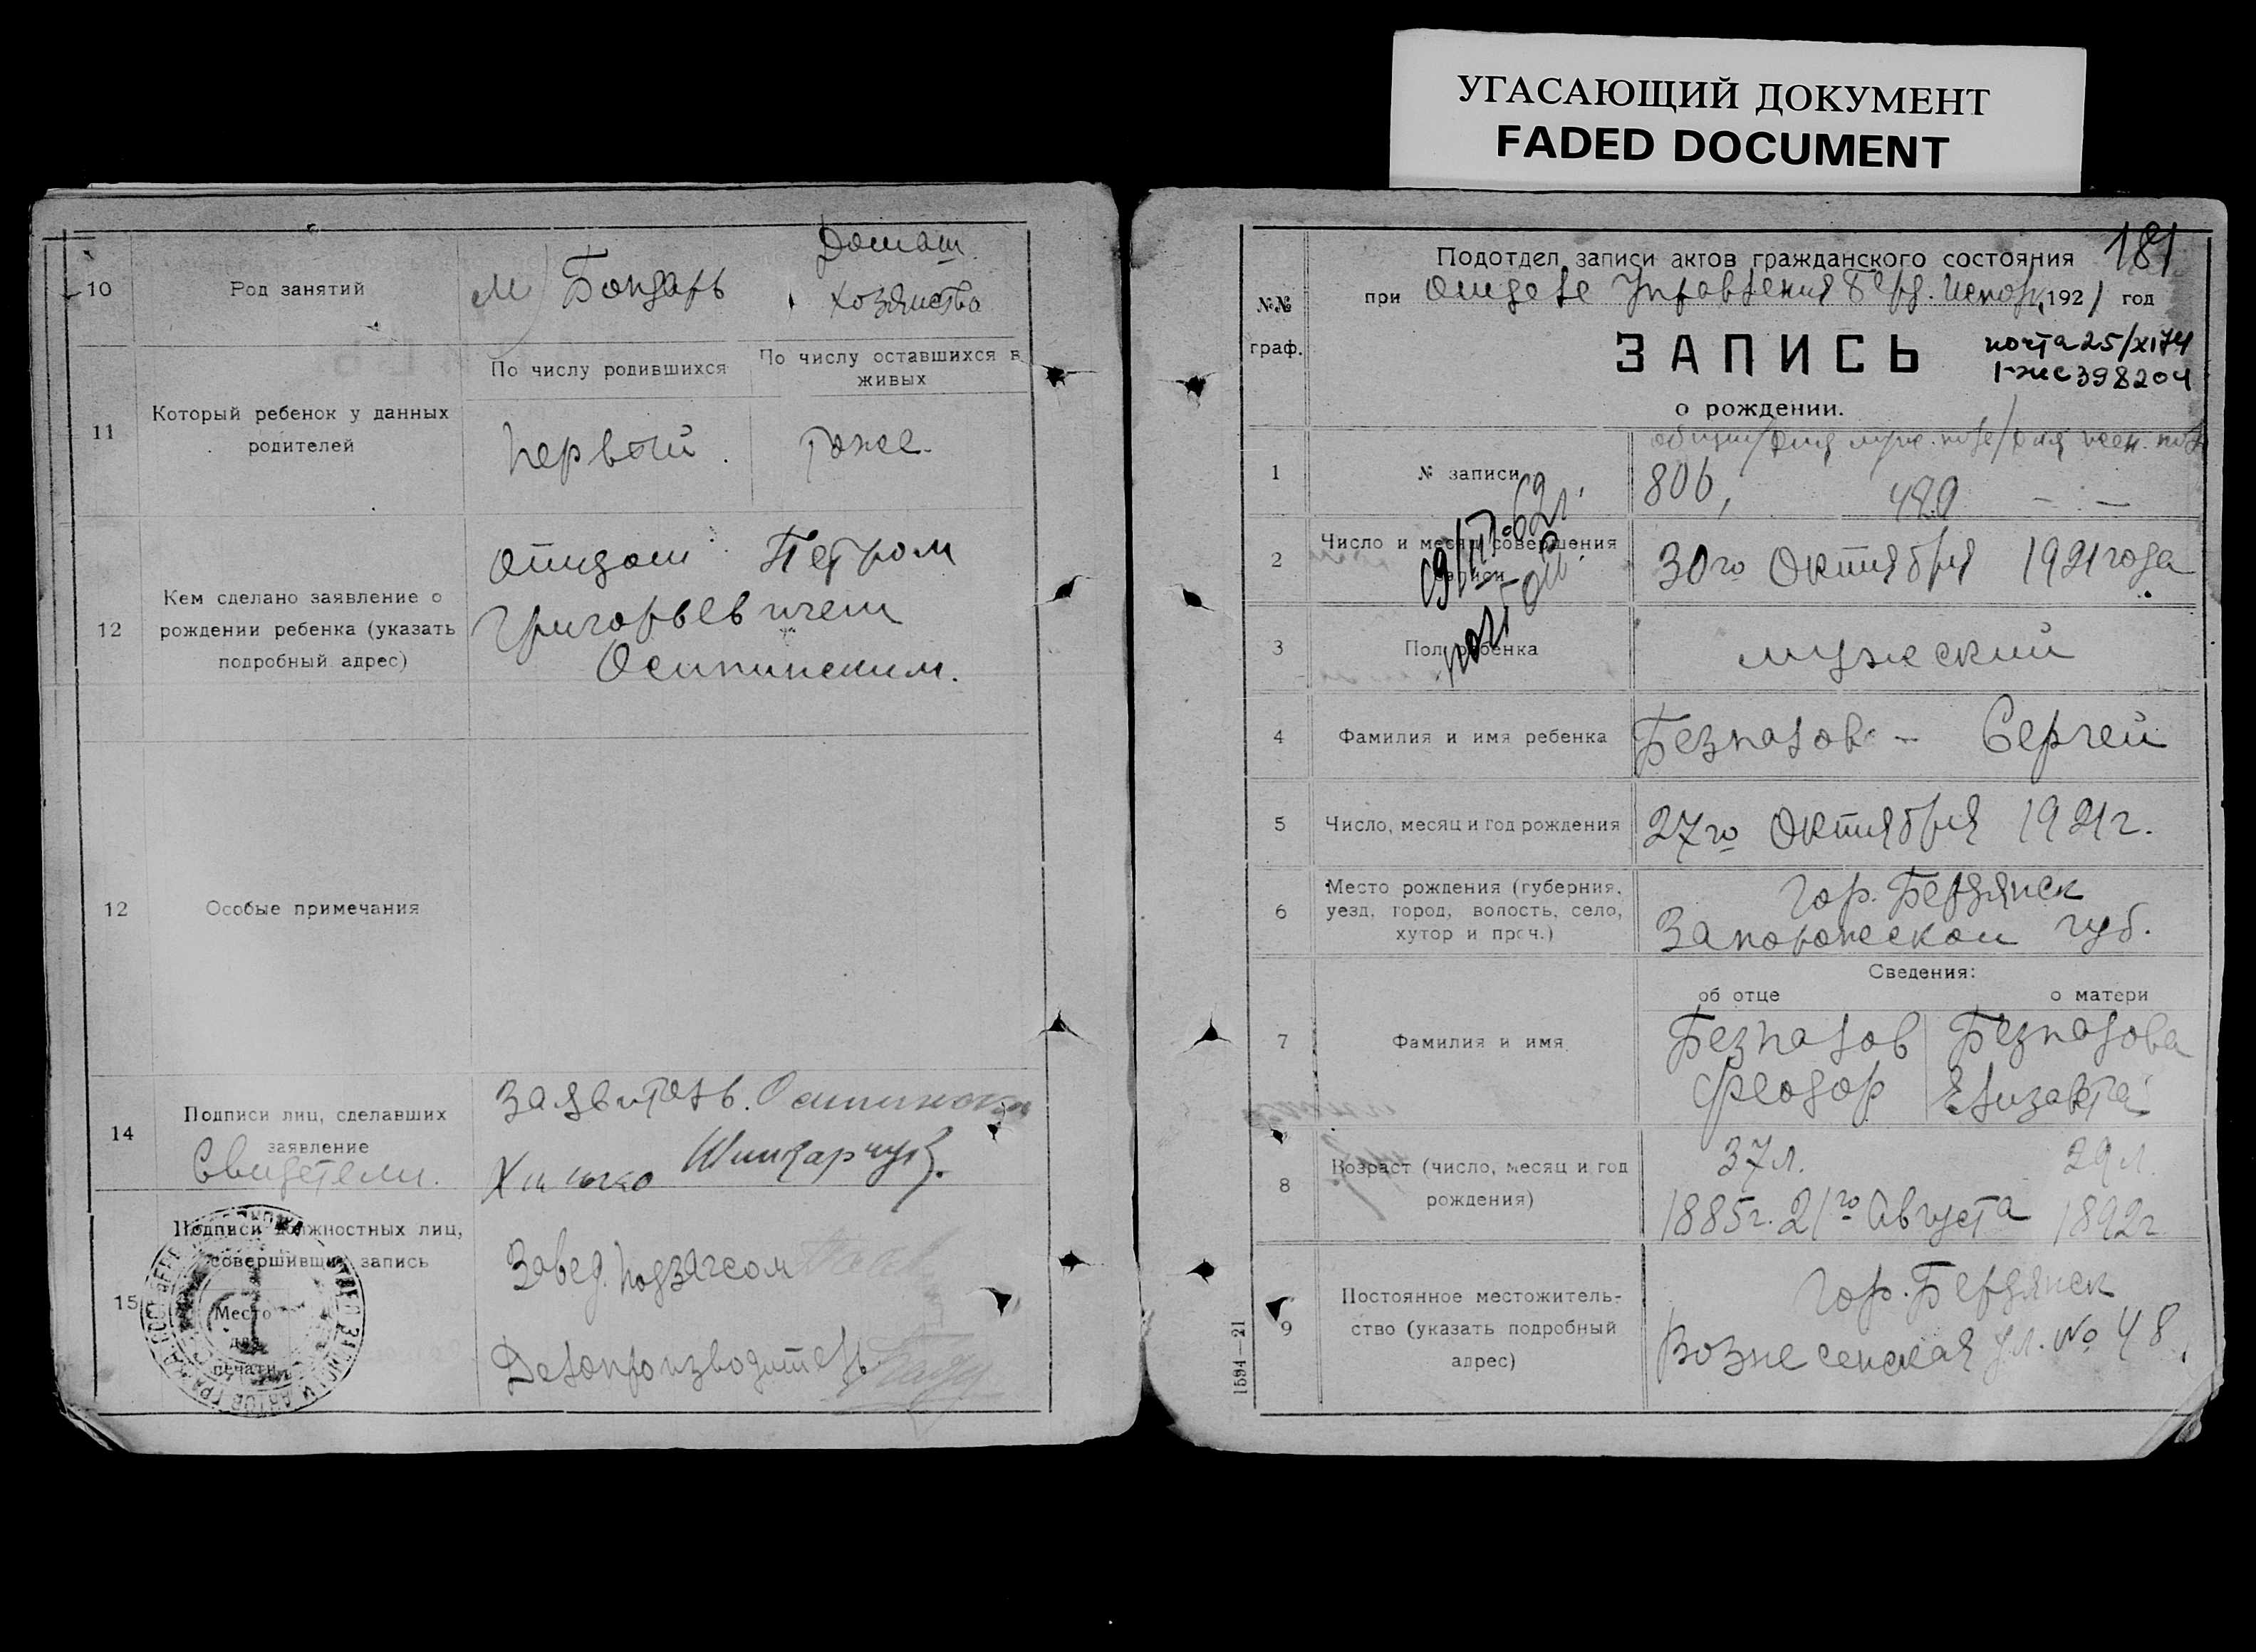 УГАСАЮЩИЙ ДОКУМЕНТ
FADED DOCUMENT
10
Род занятий
м) Бондарь
Домаш.
хозяйство
11
Который ребенок у данных
родителей
По числу родившихся
По числу оставшихся в
живых
первый.
тоже.
12
Кем сделано заявление о
рождении ребенка (указать
подробный адрес)
Петром
Григорьевичем
Осипинским.
12
Особые примечания
14
Подписи лиц, сделавших
заявление
Свидетели.
Заявитель.
Шинкарчук.
15
Подписи должностных лиц,
совершивших запись
Место
для
печати
Завед. подзагсом
Делопроизводитель
181
Подотдел записи актов гражданского состояния
при Отделе Управления Берд. Исполк, 1921 год
№№
граф.
ЗАПИСЬ
почта 25/XI 74
1-жс 398204
о рождении.
общий/для муж. пола/для жен. пола
1
№ записи
806, 420 — —
2
Число и месяц совершения
записи
30го Октября 1921 года
3
Пол ребенка
мужеский
4
Фамилия и имя ребенка
Безпалов — Сергей
5
Число, месяц и год рождения
27го Октября 1921г.
6
Место рождения (губерния,
уезд, город, волость, село,
хутор и проч.)
Гор. Бердянск
Запорожской губ.
Сведения:
об отце
о матери
7
Фамилия и имя
Безпалов
Феодор
Безпалова
Елизавета
8
Возраст (число, месяц и год
рождения)
37л.
29л.
1885г. 21го Августа
1892г
9
Постоянное местожитель-
ство (указать подробный
адрес)
Гор. Бердянск
Вознесенская ул. № 48
1594—21